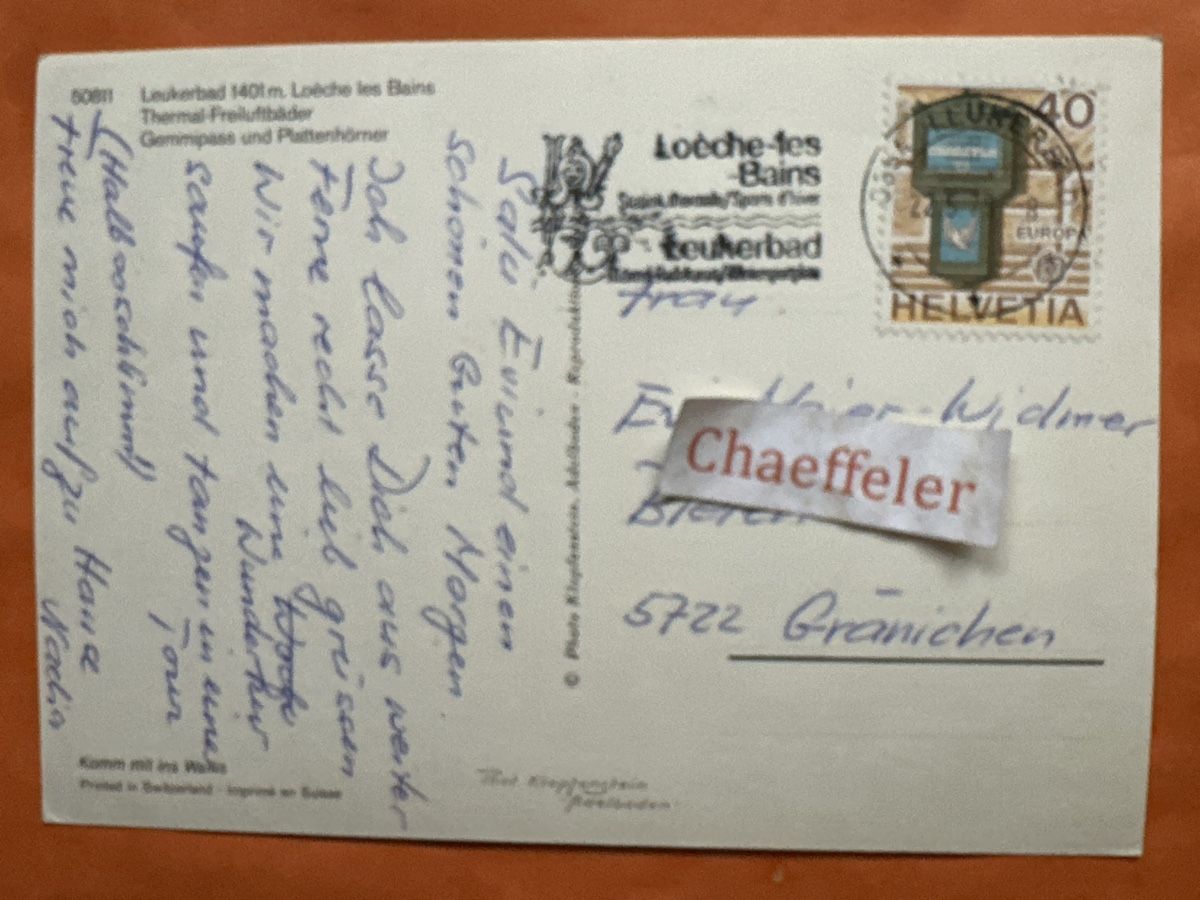 50811 Leukerbad 1401 m. Loèche les Bains
Thermal-Freiluftbäder
Gemmipass und Plattenhörner
Salü Evi und einen
schönen Guten Morgen.
Ich lasse Dich aus weiter
Ferne recht lieb grüssen
Wir machen eine
Wundertur
saufen und tanzen in einer
Tour
(Halb so schlimm!)
freue mich auf zu Hause
Nadia
Komm mit ins Wallis
Printed in Switzerland - Imprimé en Suisse
© Photo Klopfenstein, Adelboden - Reproduktion
Phot Klopfenstein
Adelboden
Loèche-les
-Bains
Leukerbad
LEUKERBAD
40
EUROPA
HELVETIA
Frau
Meier-Widmer
Chaeffeler
5722 Gränichen